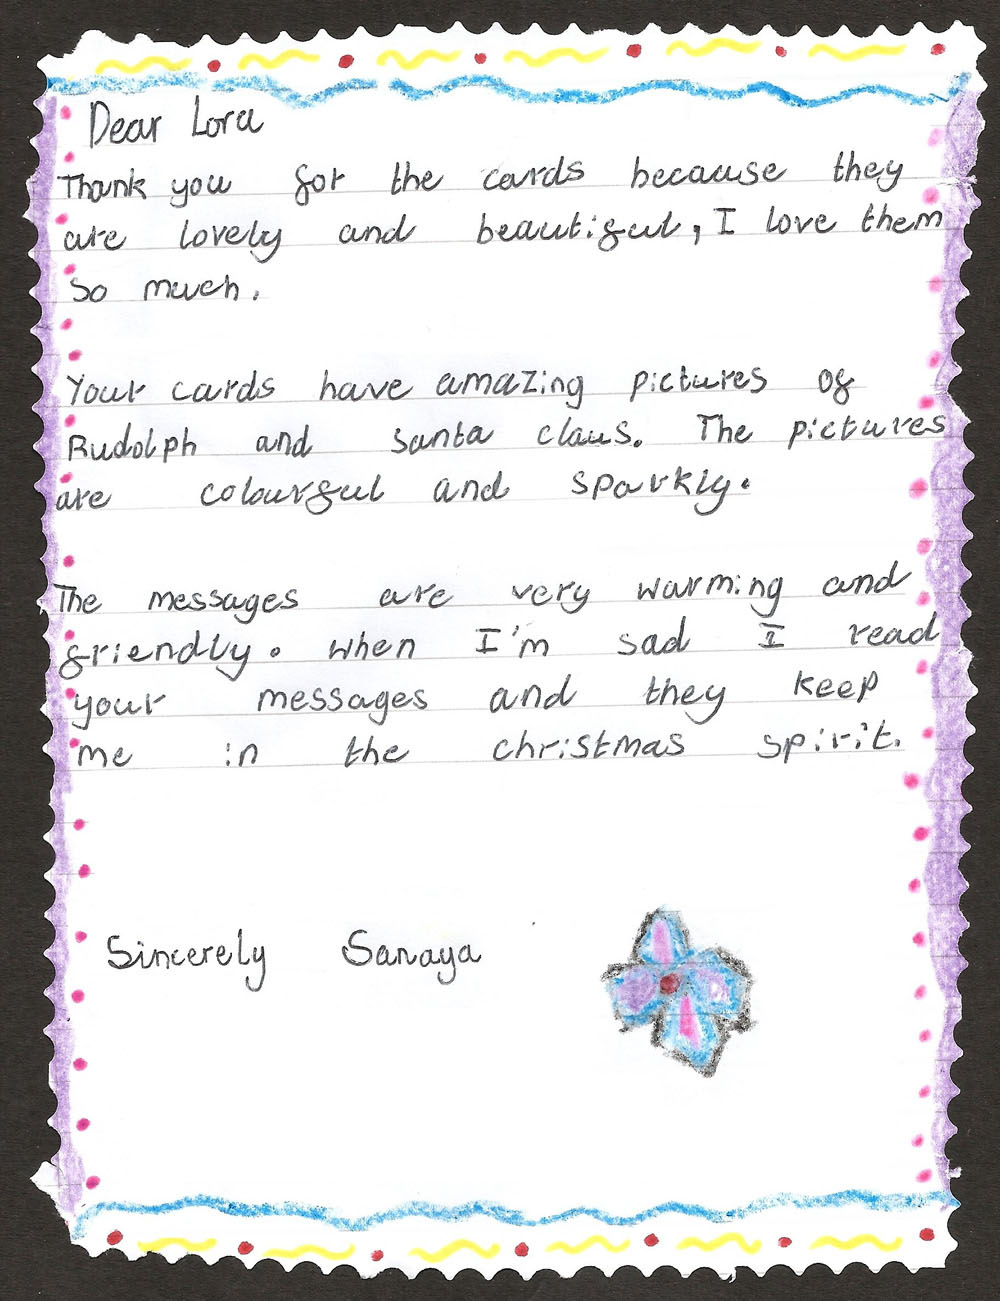 Dear Lora
Thank you for the cards because they
are lovely and beautiful, I love them
so much.
Your cards have amazing pictures of
Rudolph and santa claus. The pictures
are colourful and sparkly.
The messages are very warming and
friendly. when I'm sad I read
your messages and they keep
me in the christmas spirit.
Sincerely Sanaya